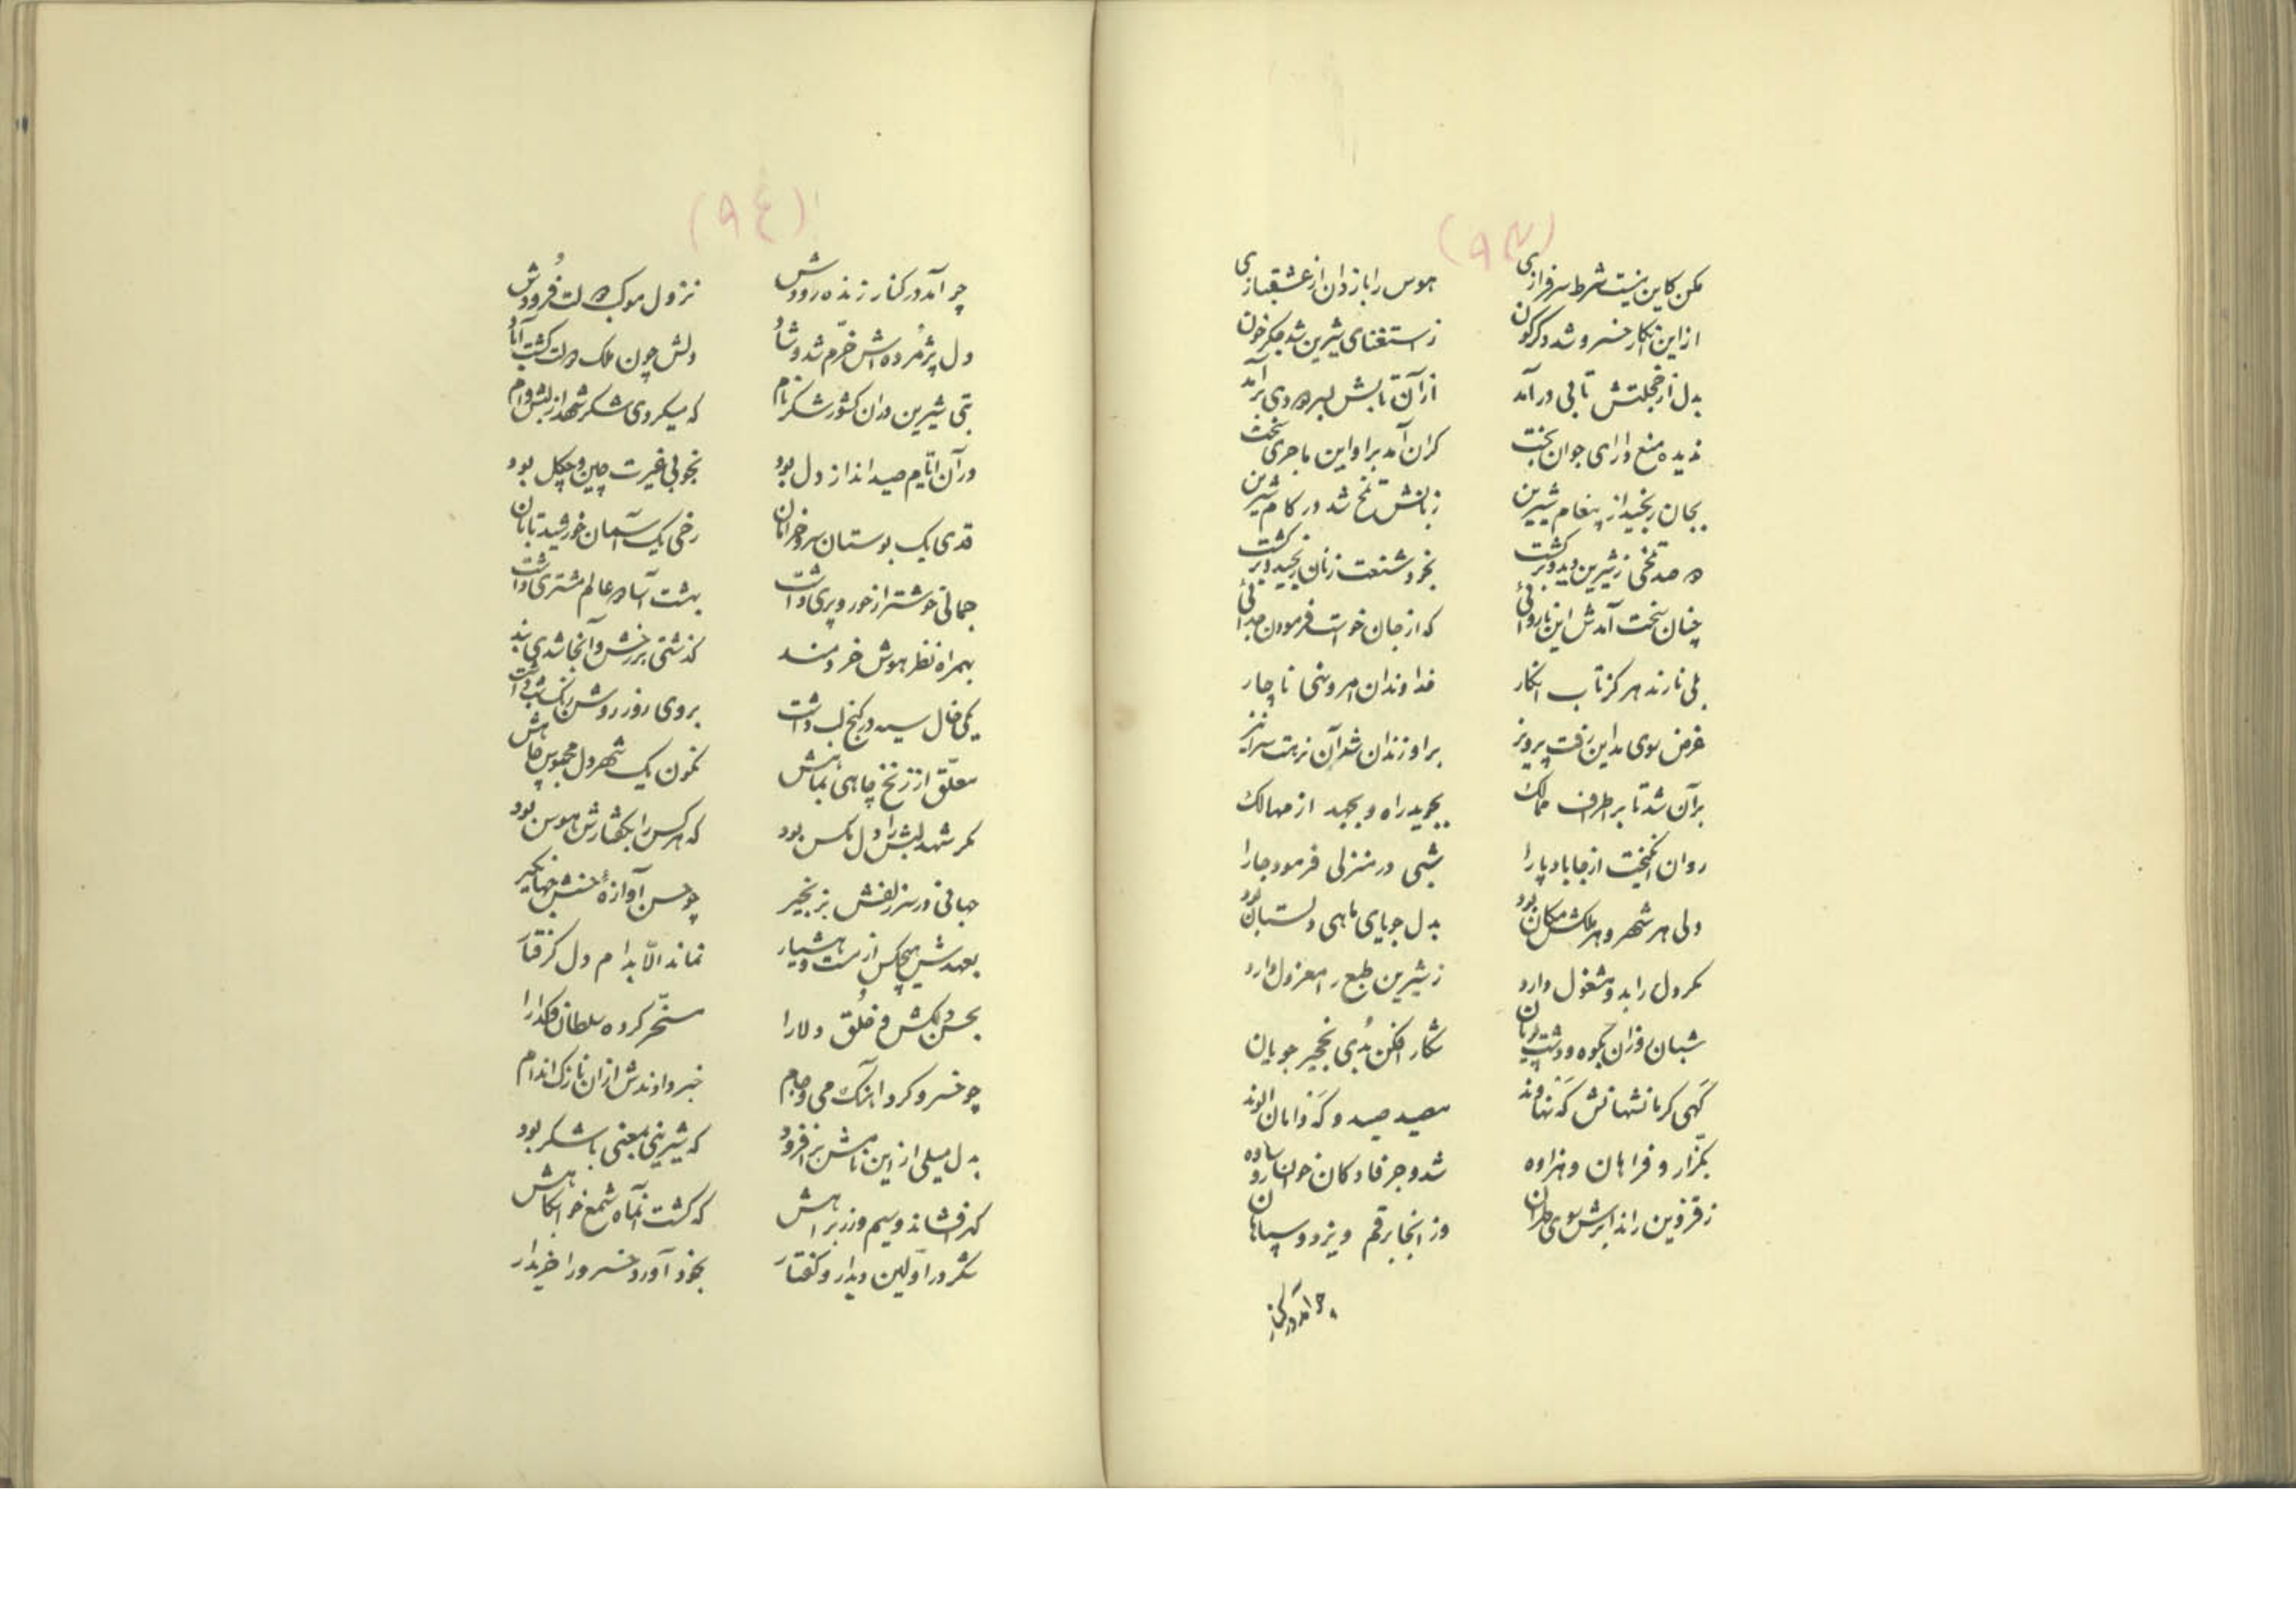 (۹۳)
مکن کاین نیست شرط سرفرازی هوس را باز دان از عشقبازی
از این انکار خسرو شد دگرگون ز استغنای شیرین شد جگرخون
بدل از خجلتش تابی درآمد از آن تابش بسر دودی برآمد
ندیده منع دارای جوان بخت گران آمد بر او این ماجری سخت
بجان رنجید از پیغام شیرین زبانش تلخ شد در کام شیرین
دو صد تلخی ز شیرین دید و برگشت بخود شنعت زنان رنجید و برگشت
چنان سخت آمدش این ناروائی که از جان خواست فرمودن جدائی
بلی نارند هرگز تاب انکار خداوندان امر و نهی ناچار
غرض سوی مداین رفت پرویز بر او زندان شد آن نزهت
بر آن شد تا بر اطراف ممالک بجوید راه و بجهد از مهالک
روان انگیخت از جا بادپا را شبی در منزلی فرمود جا را
ولی هر شهر و هر ملکش مکان بود بدل جویای ماهی دلستان بود
مگر دل را بدو مشغول دارد ز شیرین طبع را معزول دارد
شبان روزان بکوه و دشت پویان شکار افکن بدی نخجیر جویان
گهی کرمانشهانش گه نهاوند بصید صید و گه دامان الوند
بگزار و فراهان و هزاوه شد و جرفادکان خوانسار و ساوه
ز قزوین راند ابرش سوی طهران وز آنجا بر قم و یزد و سپاهان
چو آمد در کنار
(۹٤)
چو آمد در کنار زنده رودش نزول موکب دولت فرودش
دل پژمرده‌اش خرّم شد و شاد دلش چون ملک دولت گشت آباد
بتی شیرین در آن کشور شکر نام که میکردی شکر شهد از لبش وام
در آن ایّام صید انداز دل بود بخوبی غیرت چین و چگل بود
قدی یک بوستان سرو خرامان رخی یک آسمان خورشید تابان
جمالی خوشتر از حور و پری داشت بهشت آسا دو عالم مشتری داشت
بهمراه نظر هوش خردمند گذشتی بر رخش و آنجا شدی بند
یکی خال سیه در کنج لب داشت بروی روز روشن رنگ شب داشت
معلّق از زنخ چاهی بماهش نگون یک شهر دل محبوس چاهش
مگر شهد لبش را دل مگس بود که هر کس را بگفتارش هوس بود
جهانی در سر زلفش بزنجیر چو حسن آوازهٔ حسنش جهانگیر
بعهدش هیچکس از مست و هشیار نماند الّا بدام دل گرفتار
بحسن دلکش و خُلق دلارا مسخّر کرده سلطان و گدا را
چو خسرو کرد آهنگ می و جام خبر دادندش از آن نازک اندام
بدل میلی از این نامش برافزود که شیرینی بمعنی با شکر بود
گهر افشاند و سیم و زر براهش که گشت آنماه شمع خوابگاهش
شکر در اوّلین دیدار و گفتار بخود آورد خسرو را خریدار